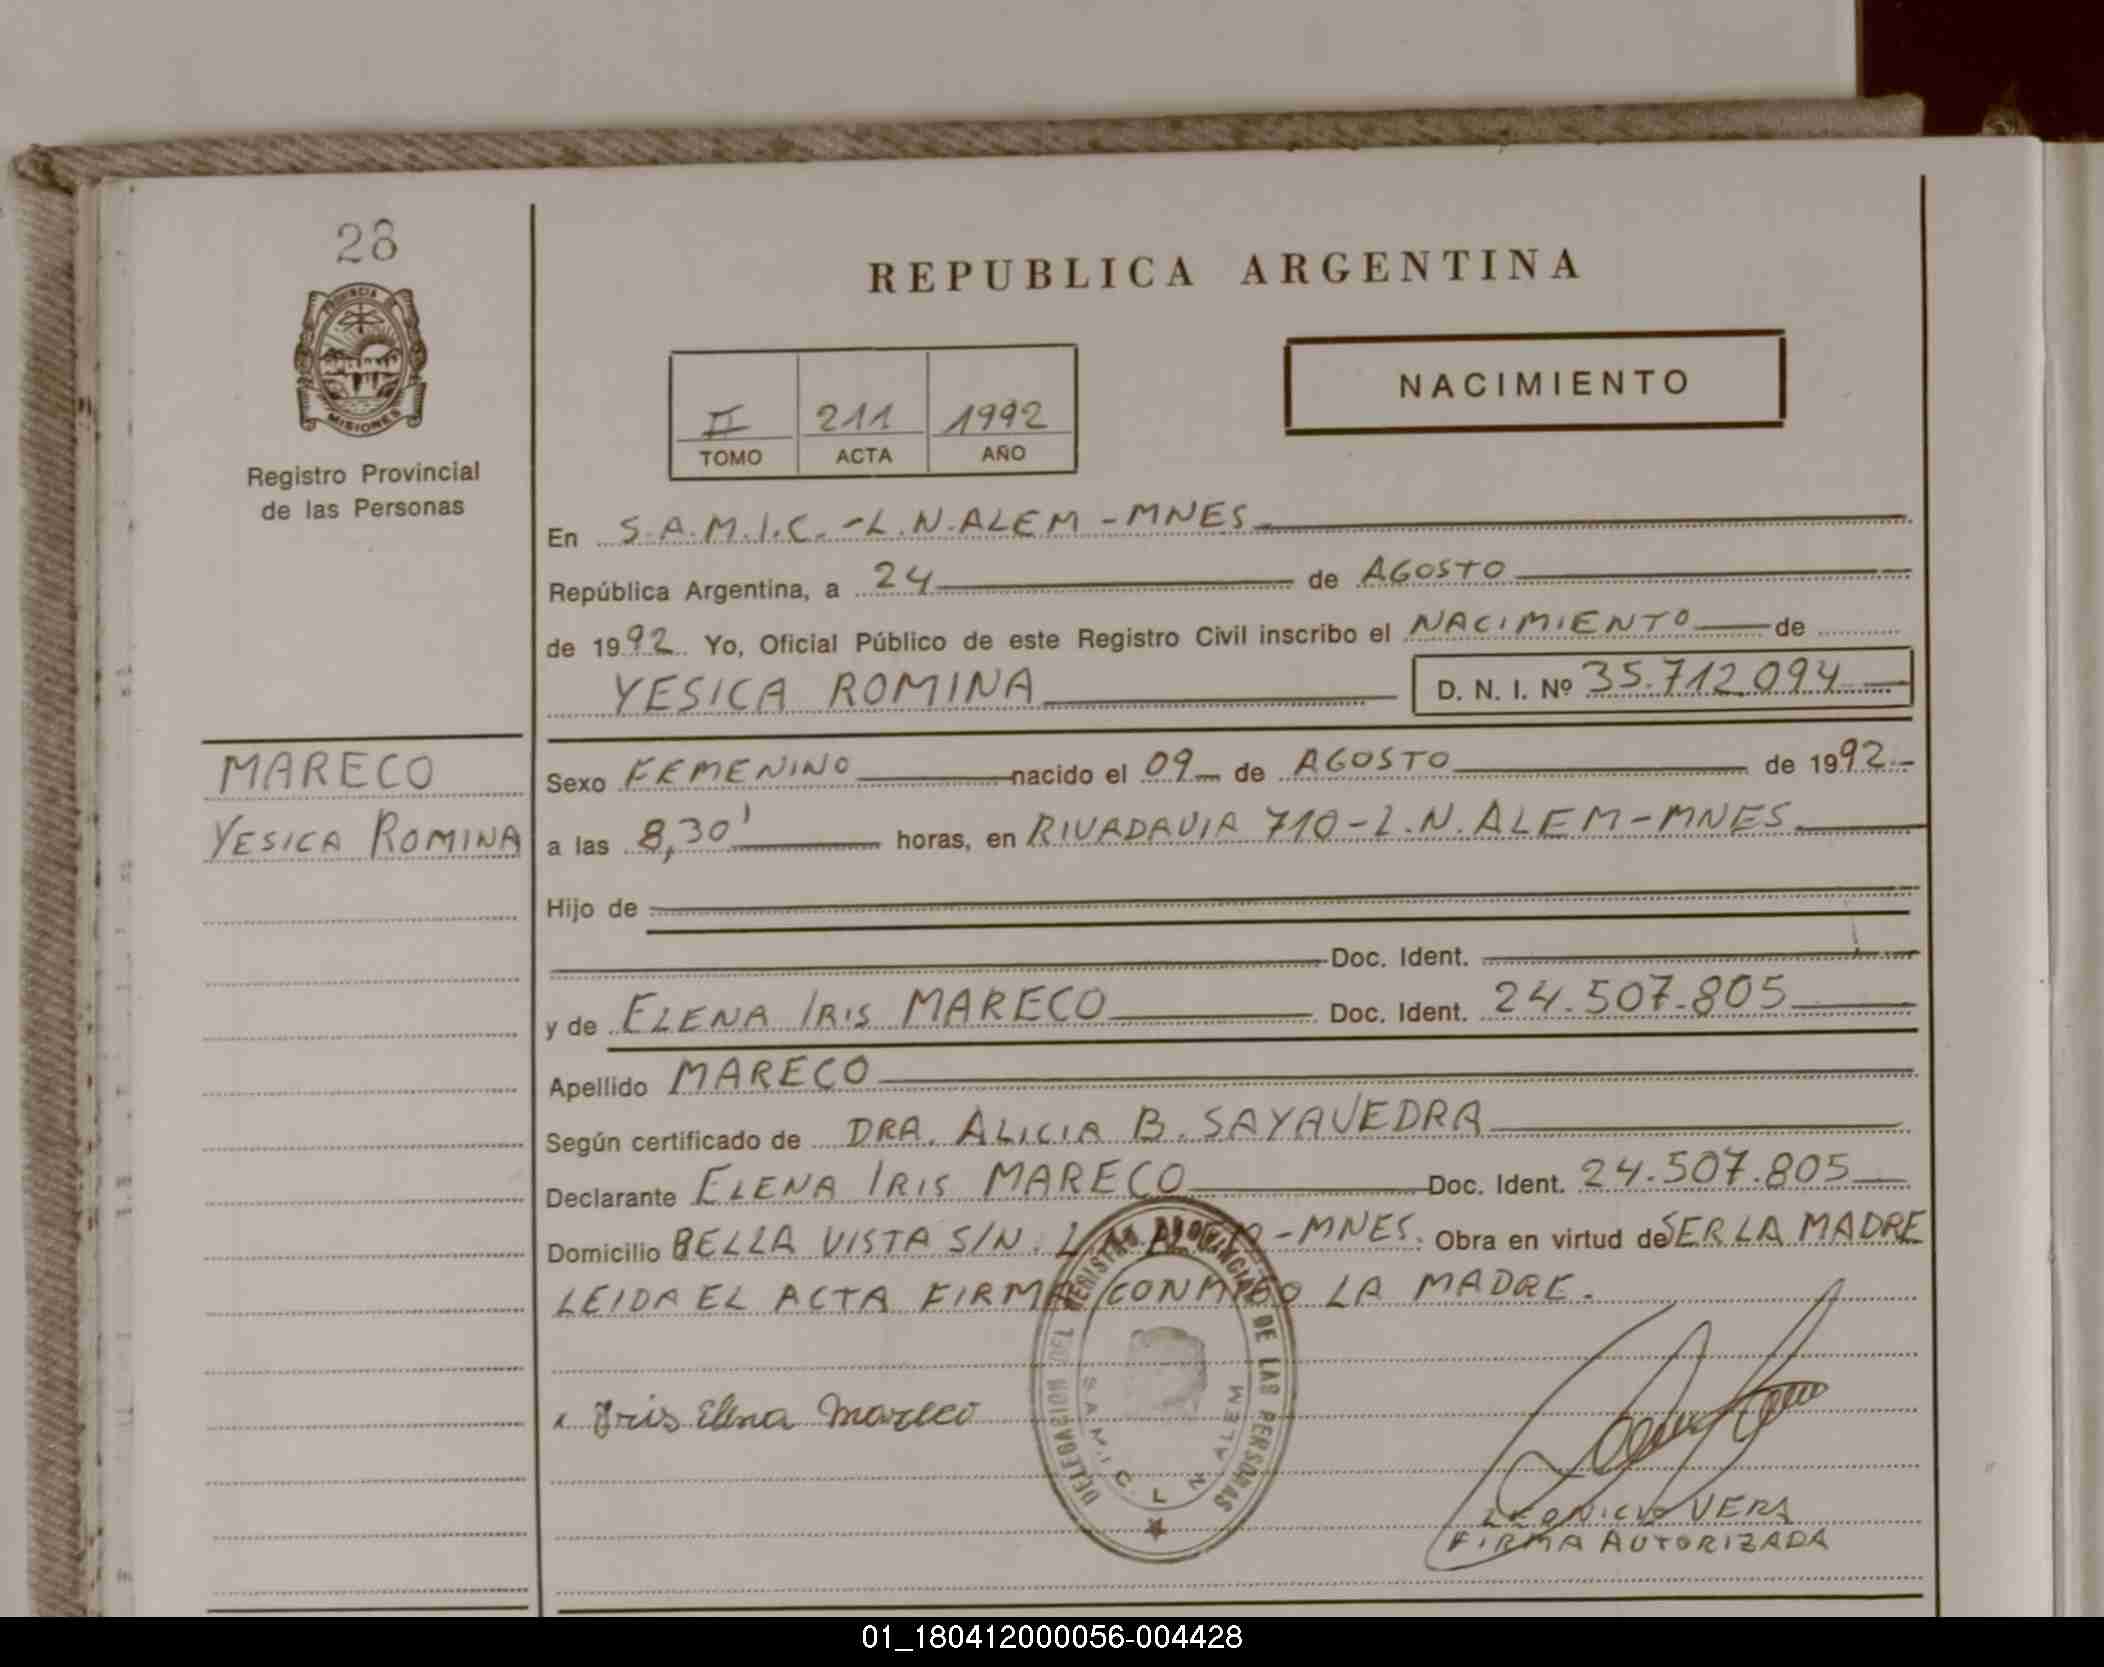 28
PROVINCIA DE
MISIONES
Registro Provincial
de las Personas
REPUBLICA ARGENTINA
II 211 1992
TOMO ACTA AÑO
NACIMIENTO
En S.A.M.I.C. - L.N.ALEM - MNES
República Argentina, a 24 de AGOSTO
de 1992. Yo, Oficial Público de este Registro Civil inscribo el NACIMIENTO de
YESICA ROMINA D. N. I. Nº 35.712.094
MARECO
YESICA ROMINA
Sexo FEMENINO nacido el 09 de AGOSTO de 1992
a las 8,30' horas, en RIVADAVIA 710 - L.N.ALEM - MNES
Hijo de
Doc. Ident.
y de ELENA IRIS MARECO Doc. Ident. 24.507.805
Apellido MARECO
Según certificado de DRA. ALICIA B. SAYAVEDRA
Declarante ELENA IRIS MARECO Doc. Ident. 24.507.805
Domicilio BELLA VISTA S/N. L.N.ALEM - MNES. Obra en virtud de SER LA MADRE
LEIDA EL ACTA FIRMA CONMIGO LA MADRE.
Iris Elena Mareco
DELEGACION DEL REGISTRO PROVINCIAL DE LAS PERSONAS
S.A.M.I.C. L N ALEM
LEONICIO VERA
FIRMA AUTORIZADA
01_180412000056-004428